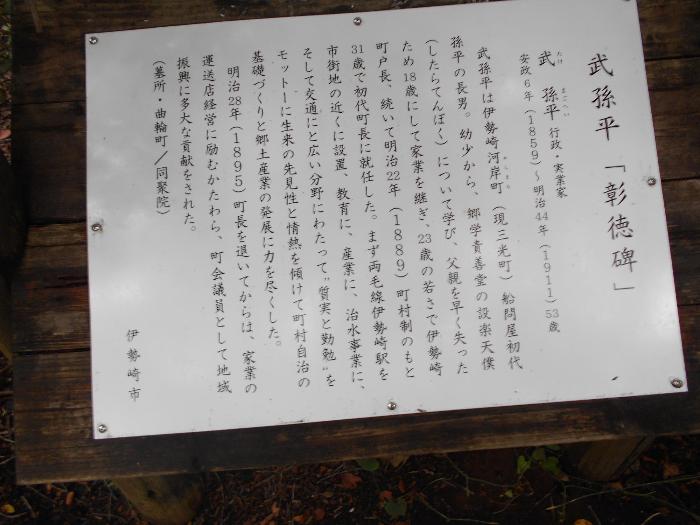 武孫平「彰徳碑」
武 孫平 行政・実業家
たけ まごへい
安政6年(1859)~明治44年(1911)53歳
武孫平は伊勢崎河岸町(現三光町)船問屋初代
孫平の長男。幼少から、郷学貴善堂の設楽天僕
(したらてんぼく)について学び、父親を早く失った
ため18歳にして家業を継ぎ、23歳の若さで伊勢崎
町戸長、続いて明治22年(1889)町村制のもと
31歳で初代町長に就任した。まず両毛線伊勢崎駅を
市街地の近くに設置、教育に、産業に、治水事業に、
そして交通にと広い分野にわたって"質実と勤勉"を
モットーに生来の先見性と情熱を傾けて町村自治の
基礎づくりと郷土産業の発展に力を尽くした。
明治28年(1895)町長を退いてからは、家業の
運送店経営に励むかたわら、町会議員として地域
振興に多大な貢献をされた。
(墓所・曲輪町/同聚院)
伊勢崎市